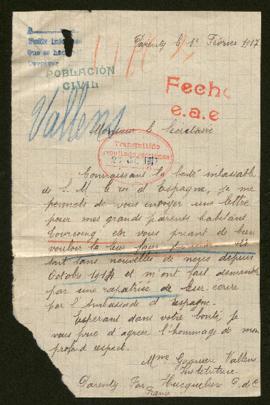 Parenty le 1er Février 1917
POBLACIÓN
CIVIL
Fecho
e.a.e
Vallens
Monsieur le Secrétaire
Connaissant la bonté inlassable
de S. M. le roi d'Espagne, je me
permets de vous envoyer une lettre
pour mes grands parents habitant
Tourcoing en vous priant de bien
vouloir la leur faire
sont sans nouvelles de nous depuis
Octobre 1914 et m'ont fait demander
par une rapatriée de leur écrire
par l'Ambassade d'Espagne.
Espérant dans votre bonté, je
vous prie d'agréer l'hommage de mon
profond respect.
Mme
Institutrice
Parenty Par Hucqueliers P. de C.
France